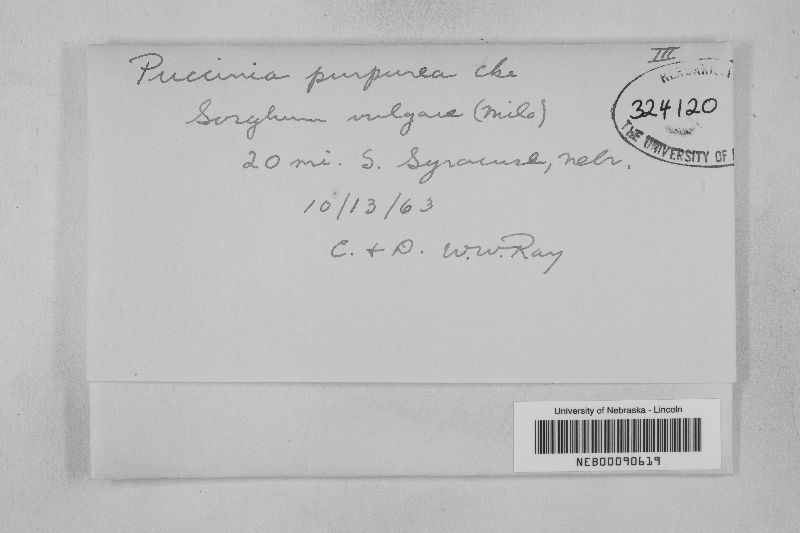 III
Puccinia purpurea Cke
Sorghum vulgare (Milo)
20 mi. S. Syracuse, Nebr.
10/13/63
C. + D. W.W. Ray
324120
THE UNIVERSITY OF
University of Nebraska - Lincoln
NEB00090619